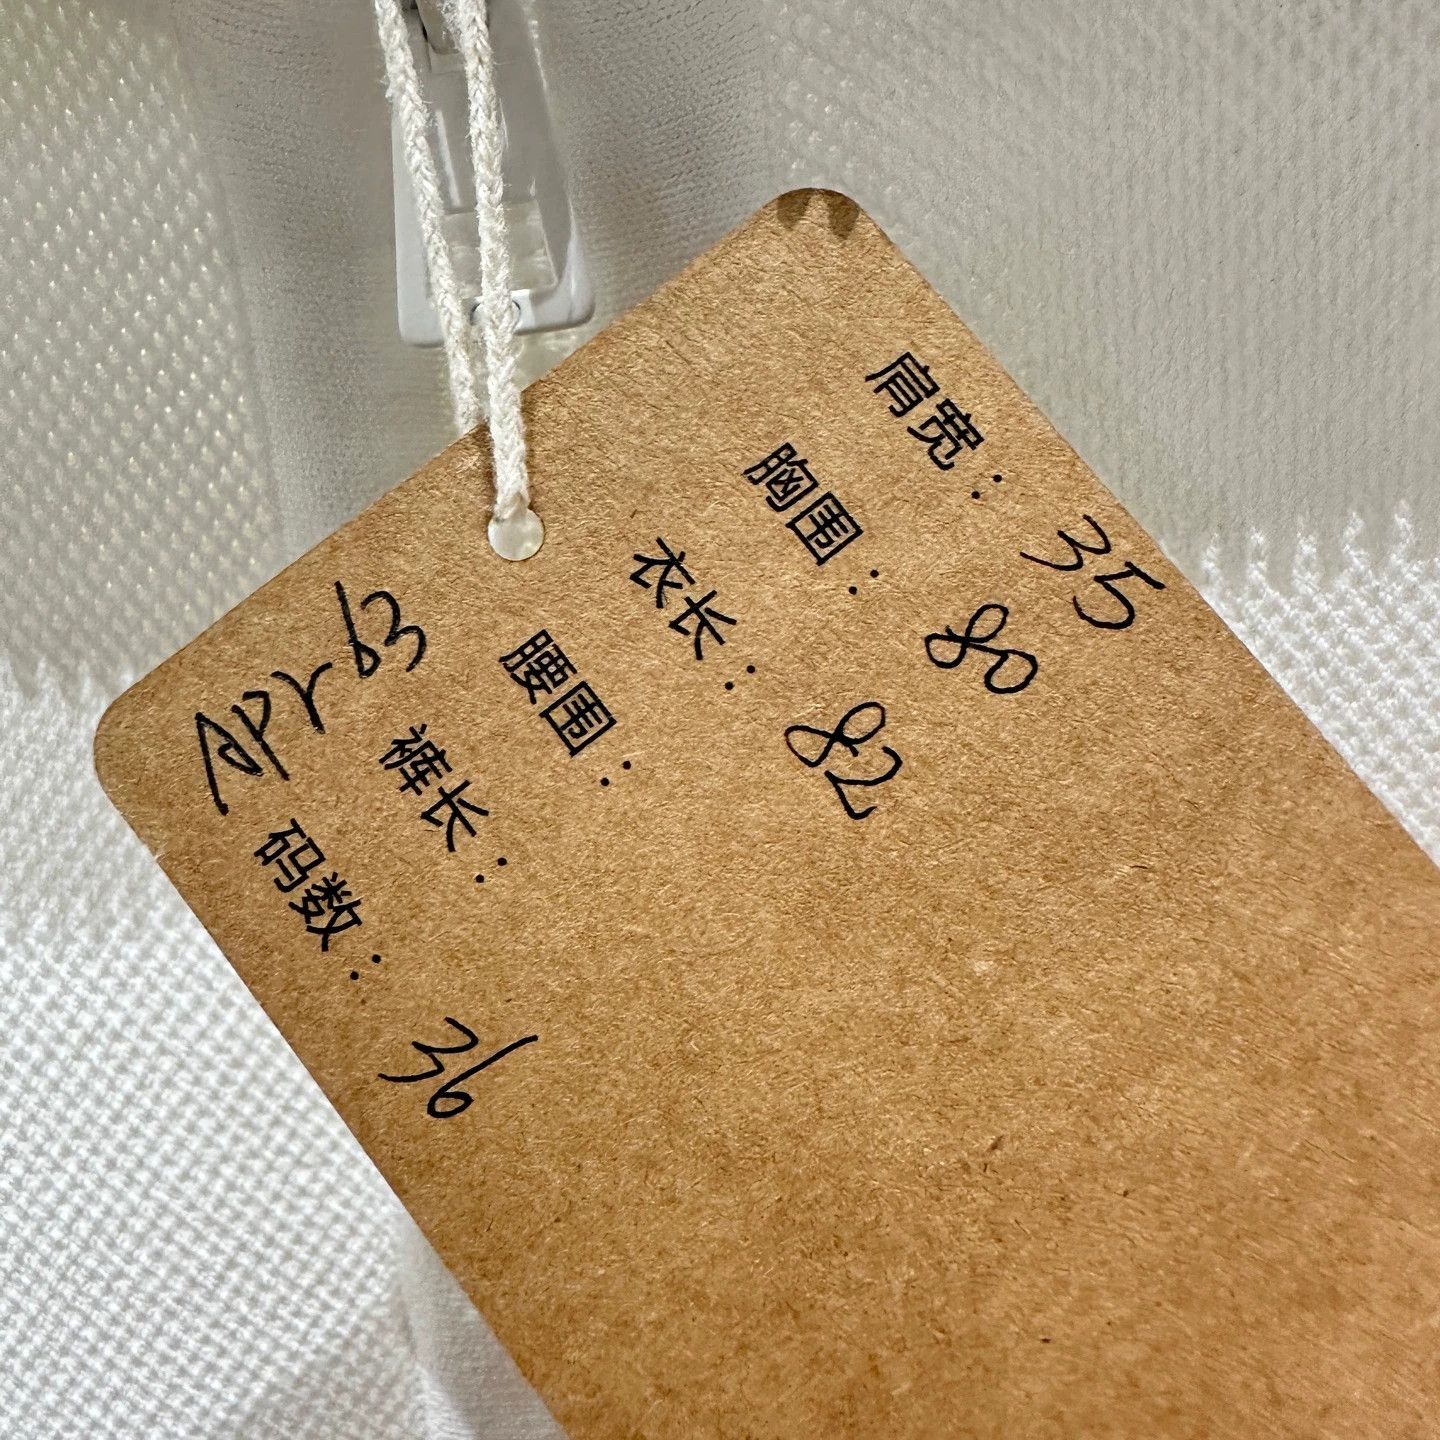 肩宽：35
胸围：80
衣长：82
腰围：
裤长：
码数：36